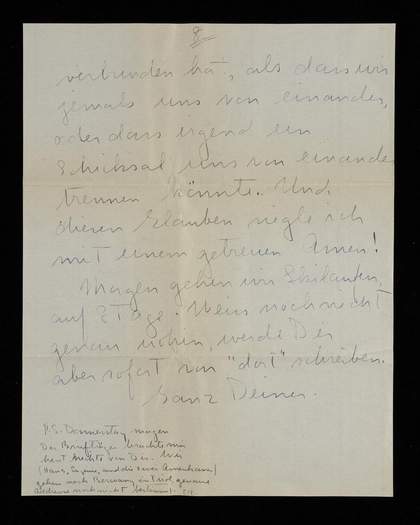 8
verbunden hat, als dass wir
jemals uns von einander,
oder dass irgend ein
Schicksal uns von einander
trennen könnte. Und
diesen Glauben siegle ich
mit einem getreuen Amen!
Morgen gehen wir Skilaufen,
auf 2 Tage. Weiss noch nicht
genau wohin, werde Dir
aber sofort von "dort" schreiben.
Ganz Deiner.
P.S. Donnerstag morgen
Der Briefträger brachte mir
heut nichts von Dir. Wir
(Hans, Eugene, und die zwei Amerikaner)
gehen nach Berwang in Tirol, genaue
Adresse noch nicht bekannt.